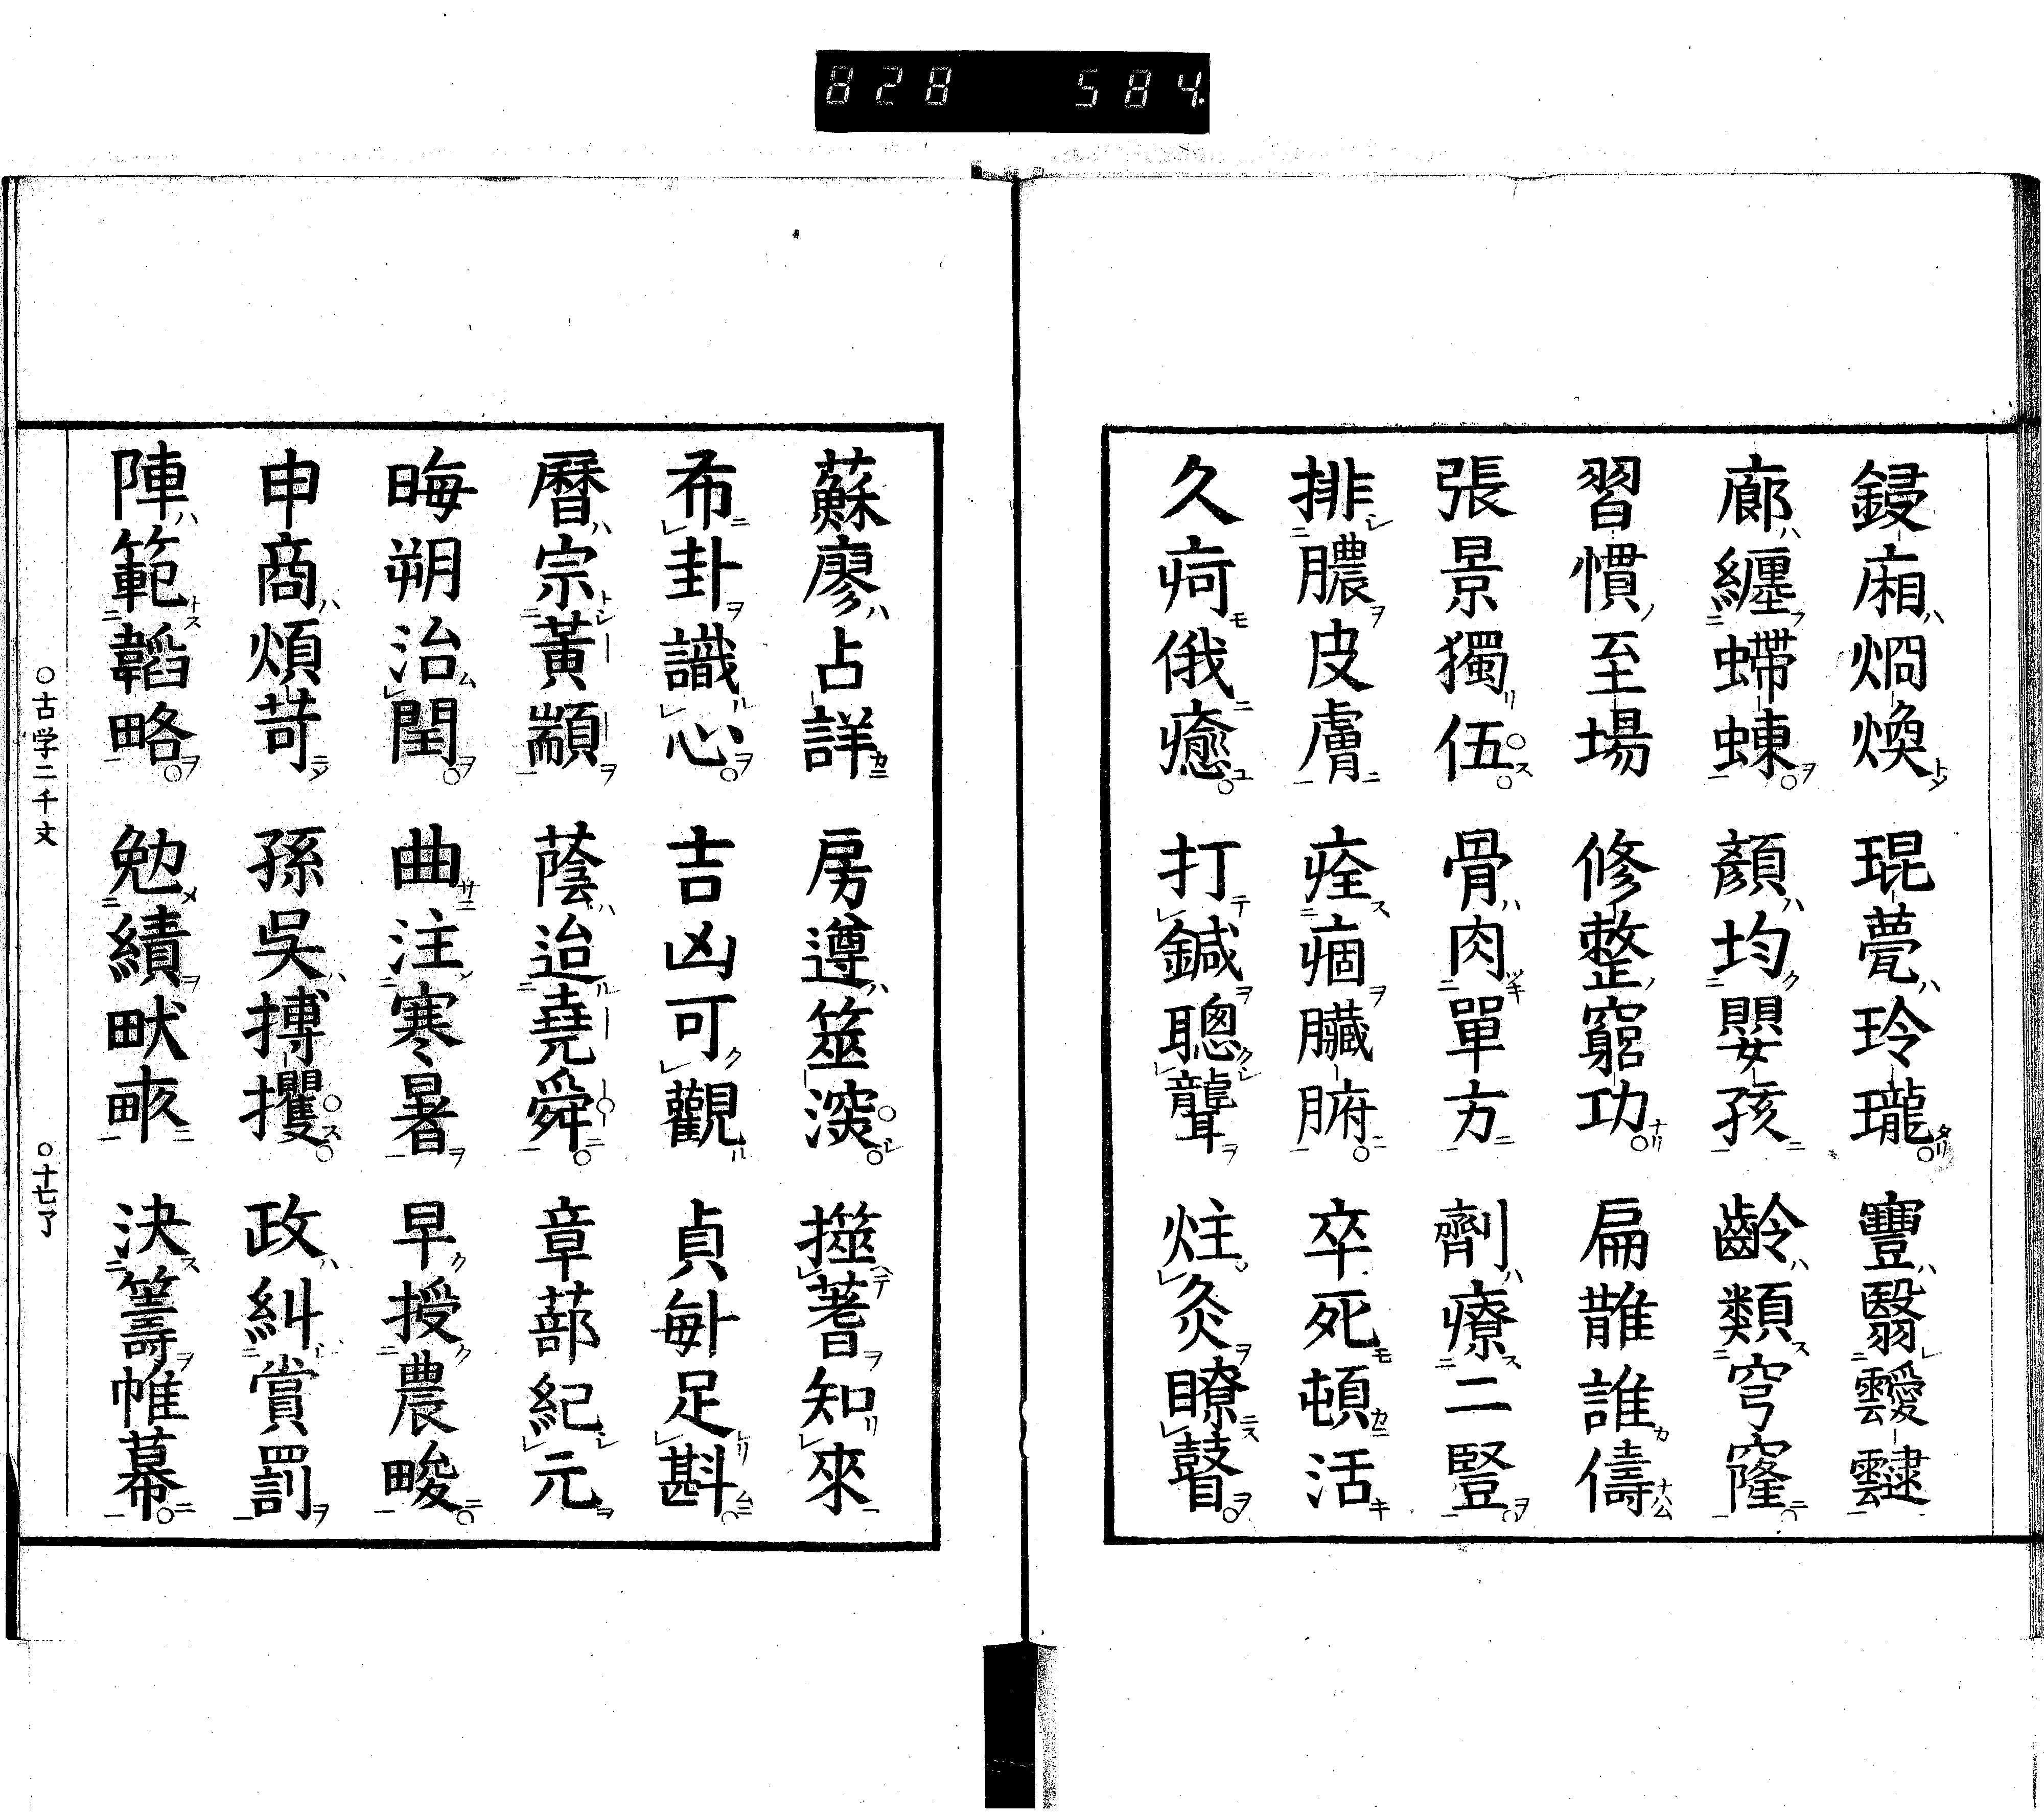 828 584
鋟廂燗煥 琨甍玲瓏 豐翳靉靆
廊纏螮蝀 顏均嬰孩 齡類穹窿
習慣至場 修整窮功 扁鵲誰儔
張景獨伍 骨肉單方 劑療二豎
排膿皮膚 痊痼臟腑 卒死頓活
久痾俄癒 打鍼聰聾 炷灸瞭瞽
蘇廖占詳 房遵筮深 揲蓍知來
布卦識心 吉凶可觀 貞每足斟
曆宗黃顓 蔭迨堯舜 章蔀紀元
晦朔治閏 曲注寒暑 早授農畯
申商煩苛 孫吳搏攫 政糾賞罰
陣範韜略 勉績畎畝 決籌帷幕
○古学二千文 ○十七了